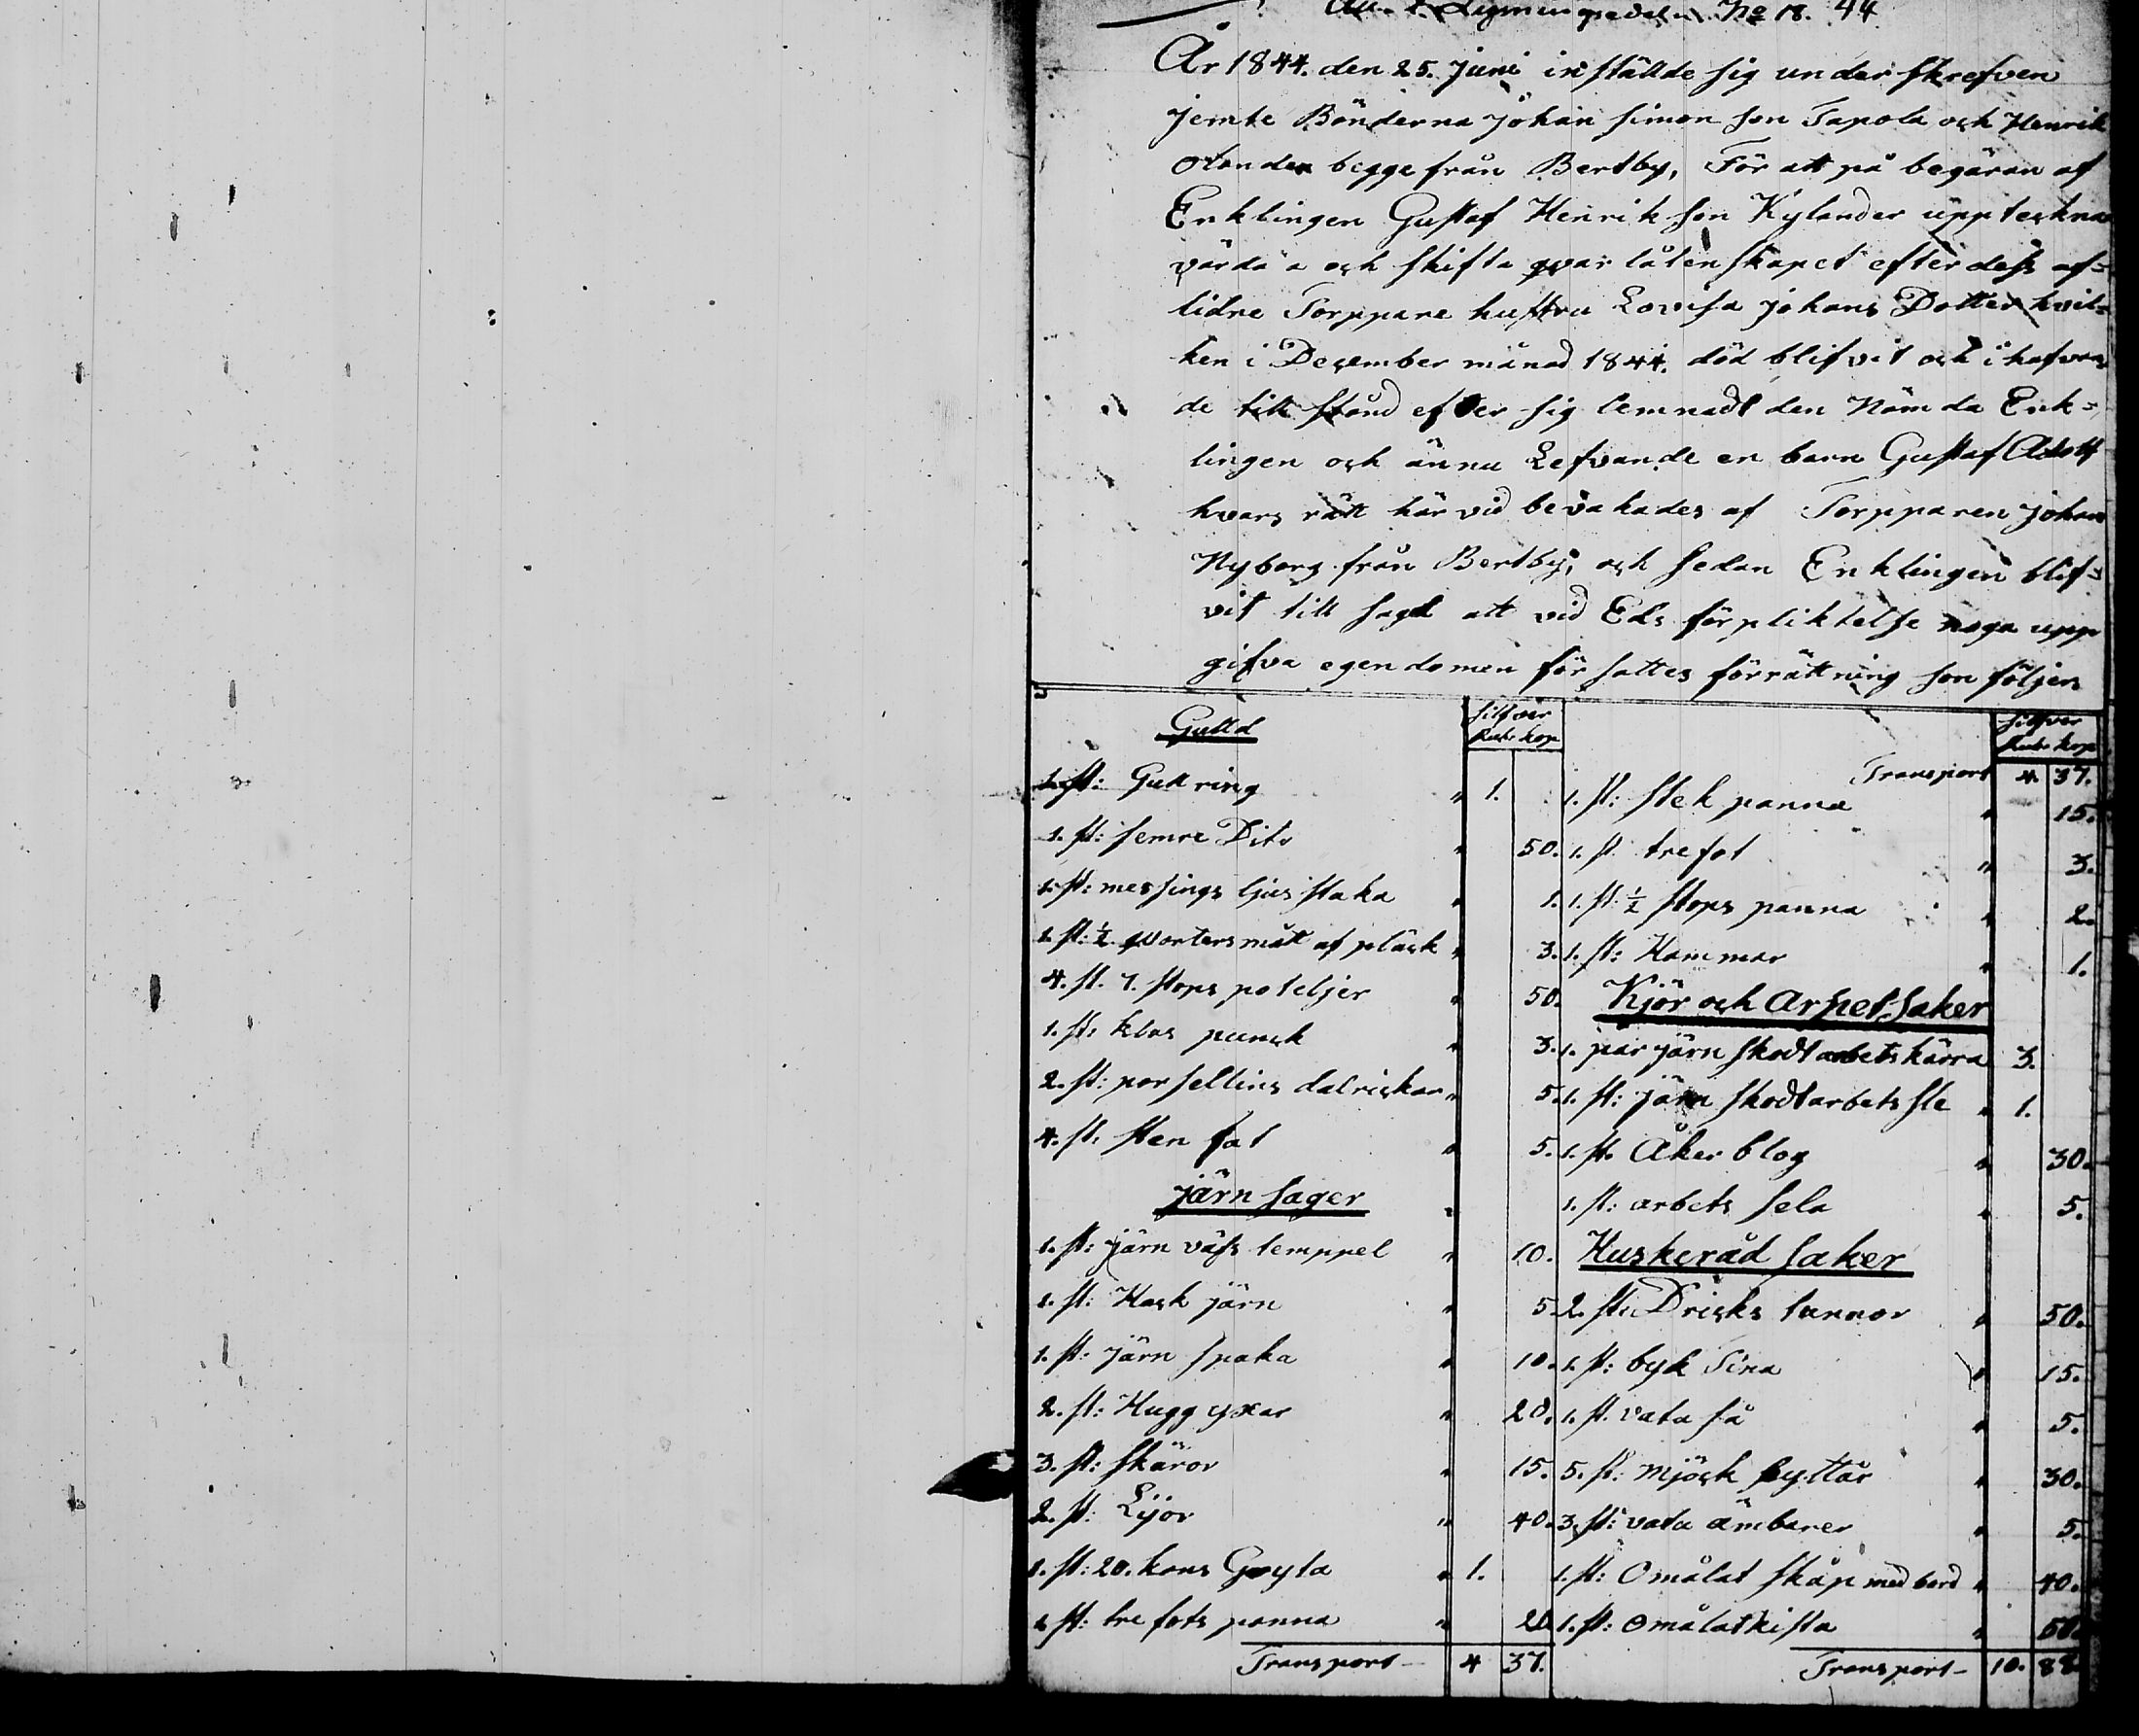 No 18. 44
År 1844. den 25. Juni inställde sig under skrefven
jemte Bönderna Johan Simon son Tapola och Henrik
Olander begge från Bertby, För att på begäran af
Enklingen Gustaf Henrik son Kylander uppteckna
värda a och skifta qvar låtenskapet efter dess af=
lidne Torppare hustru Lovisa Johans Dotter hvil=
ken i December månad 1844. död blifvit och i hafvan
de till stånd efter sig lemnadt den Näm da Enk=
lingen och ännu Lefvande en barn Gustaf Adolf
hvars rätt här vid bevakades af Torpparen Johan
Nyborg från Bertby, och sedan Enklingen blif=
vit till sagd att vid Eds förpliktelse noga upp
gifva egendomen för sattes förrättning son följer
Gulld
Silfver
Rub: kop
1. st: Gull ring " 1.
1. st: semre Dito " 50.
1. st: messings ljus staka " 1.
1. st: ½ qvorters mått af pläck " 3.
4. st. 1. stops poteljer " 50.
1. st: klas punck " 3.
2. st: porsellins dalrickar " 5.
4. st: sten fat " 5.
Järn sager
1. st: järn väfs temppel " 10.
1. st: Hack järn " 5.
1. st: Järn spaka " 10.
2. st: Hugg yxar " 20.
3. st: skäror " 15.
2. st: Lijor " 40.
1. st: 20. kans Gryta " 1.
1 st: tre fots panna " 20
Transport - 4 37.
Silfver
Rub: kop
Transport 4. 37.
1. st: stek panna " 15.
1. st trefot " 3.
1. st: ½ stops panna " 2.
1. st: Hammar " 1.
Kjör och Arpet saker
1. par järn skodt arbets kärra 3.
1. st: järn skodt arbets sle " 1.
1. st. Åker blog " 30.
1. st: arbets sela " 5.
Huskeråd saker
2. st: Dricks tannor " 50.
1. st: byk Tina " 15.
1. st. vata så " 5.
5. st: Mjöck byttår " 30.
3. st: vata ämbarer " 5.
1. st: Omålat skåp med bord " 40.
1. st: Omålat kista " 50.
Transport - 10. 88